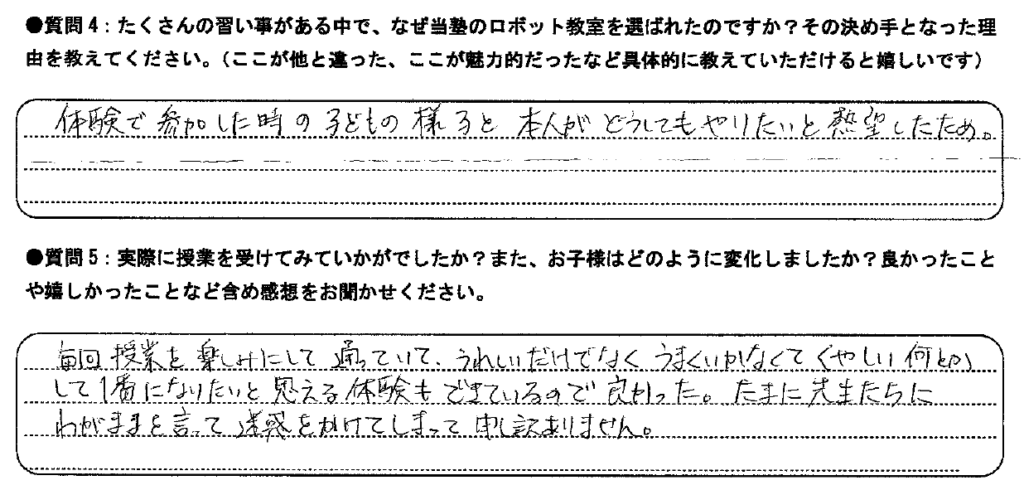 ●質問4：たくさんの習い事がある中で、なぜ当塾のロボット教室を選ばれたのですか？その決め手となった理
由を教えてください。（ここが他と違った、ここが魅力的だったなど具体的に教えていただけると嬉しいです）
体験で参加した時の子どもの様子と本人がどうしてもやりたいと熱望したため。
●質問5：実際に授業を受けてみていかがでしたか？また、お子様はどのように変化しましたか？良かったこと
や嬉しかったことなど含め感想をお聞かせください。
毎回授業を楽しみにして通っていて、うれしいだけでなくうまくいかなくてくやしい何とか
して1番になりたいと思える体験もできているので良かった。たまに先生たちに
わがままを言って迷惑をかけてしまって申し訳ありません。